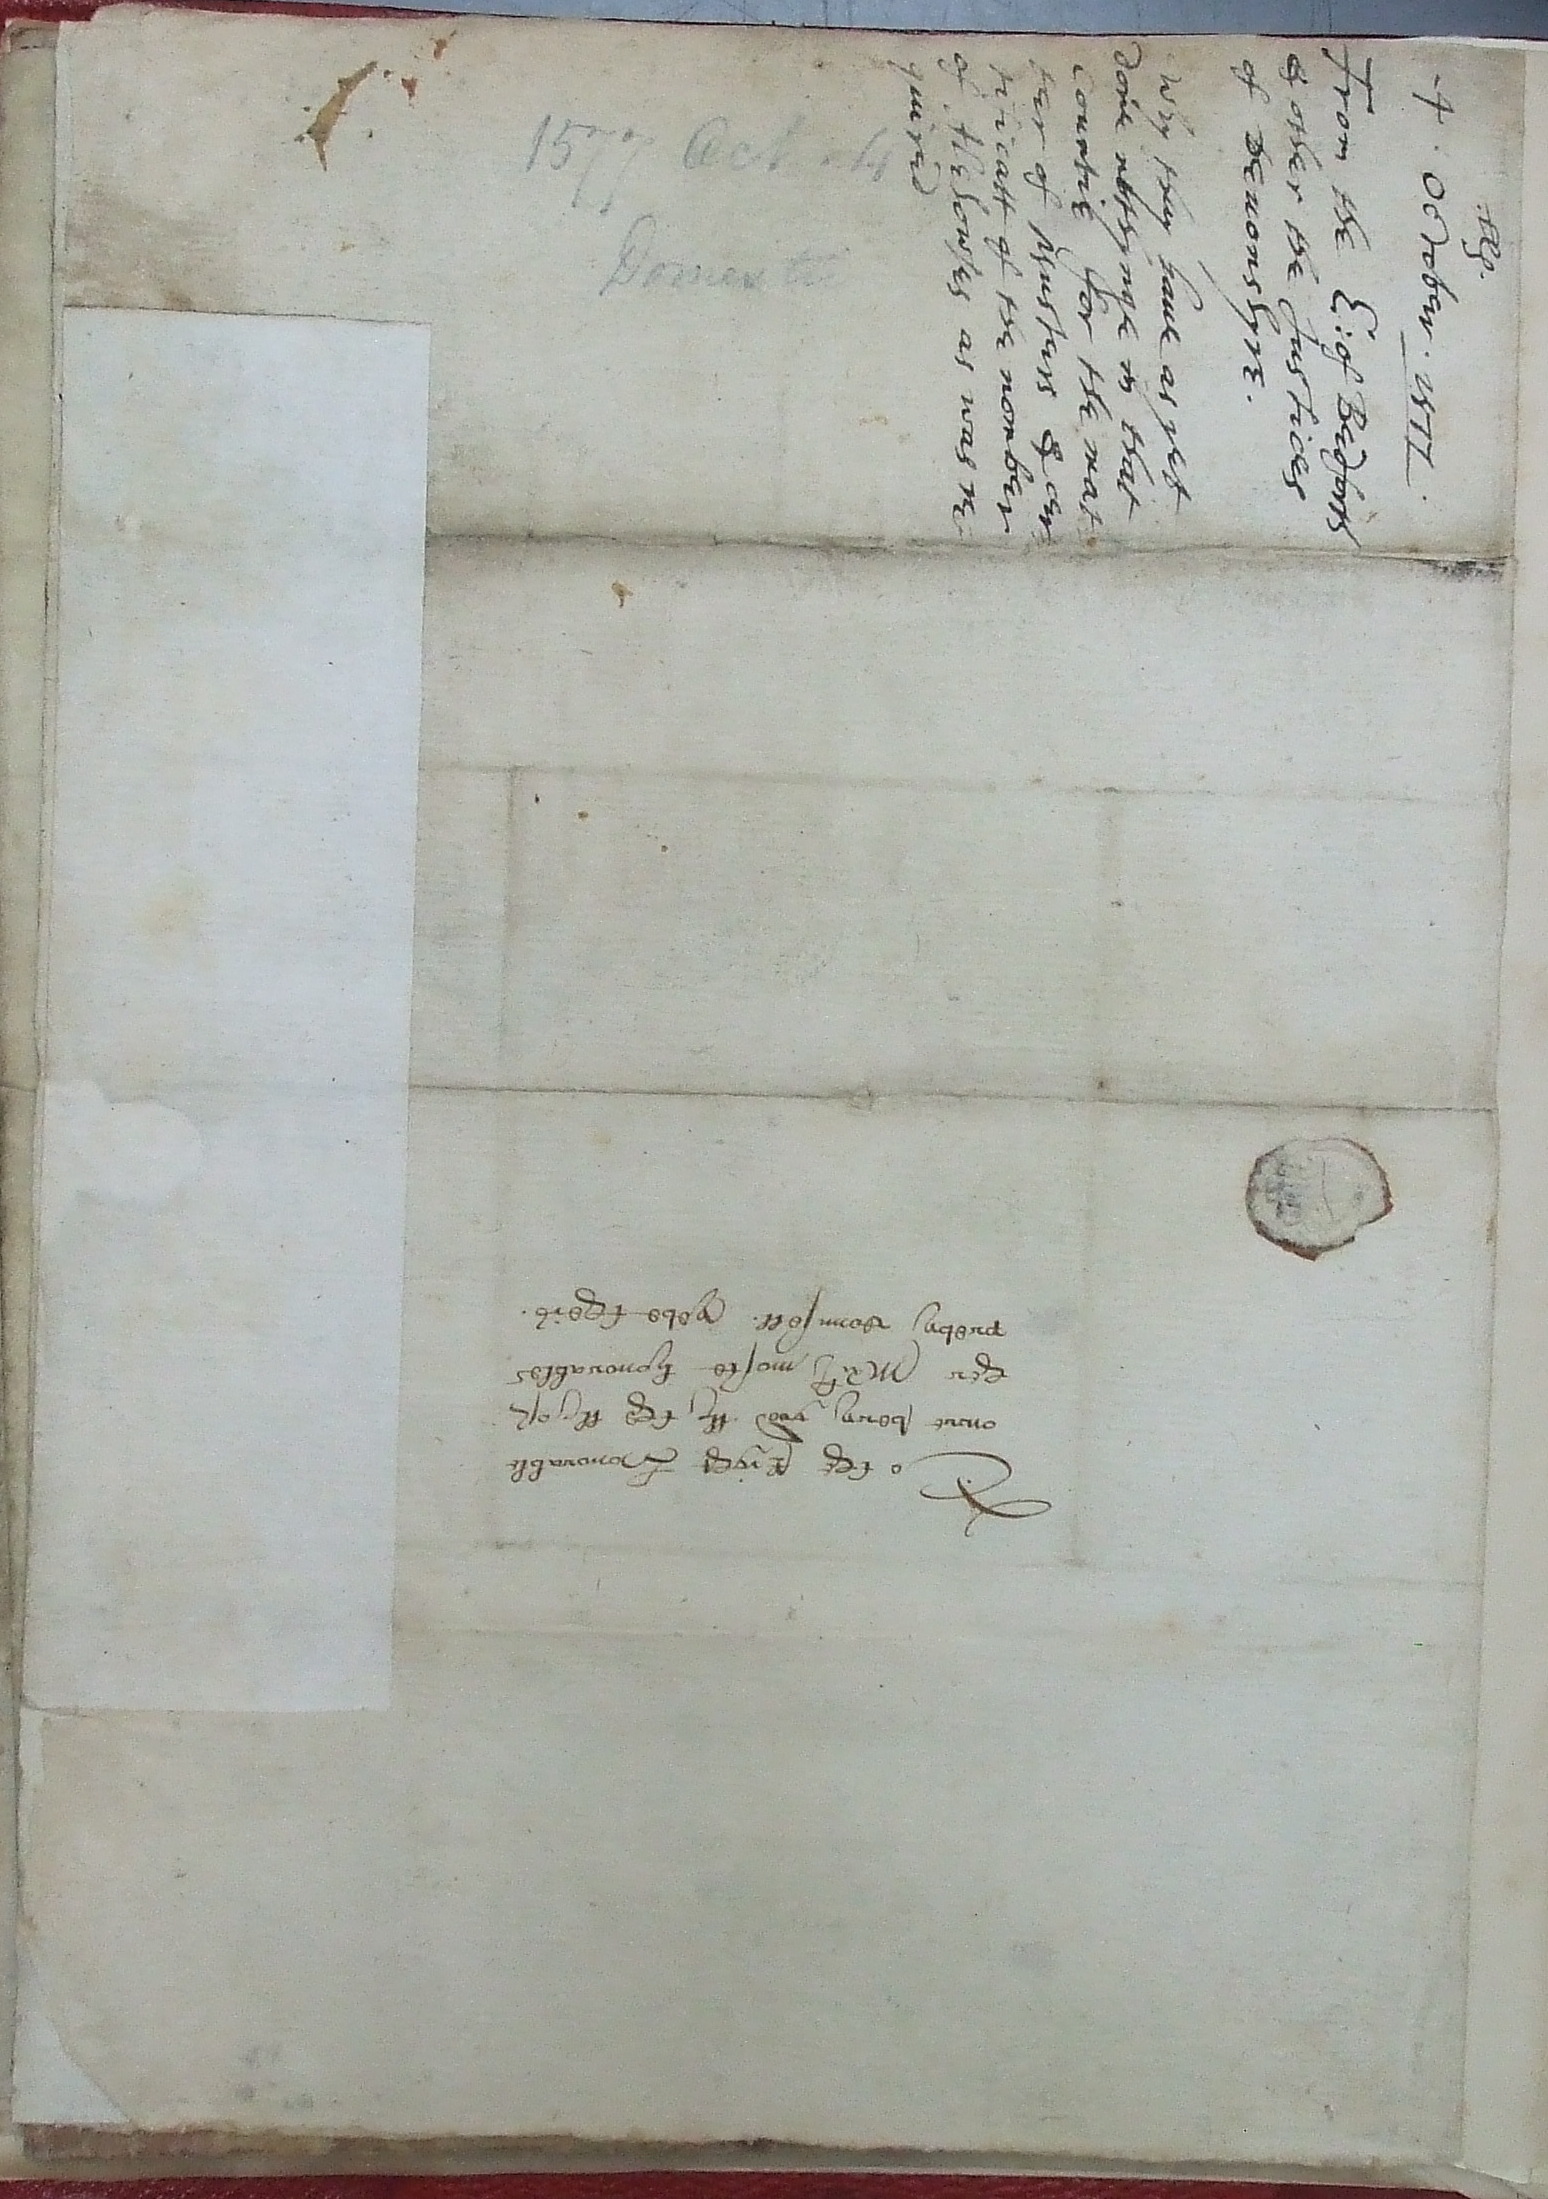 4 October. 1577.
From the E: of Bedford
& other the Justices
of Devonshyre.
Why they haue as yet
done nothynge in that
Countie for the mat
ter of Musters & cer
tificatt of the nomber
of as was re
quired
1577 Oct. 4
Domestic
To the Right Honorable
oure very good the
her Ma^ties moste honorables
prevy Counsell. yeve theis.